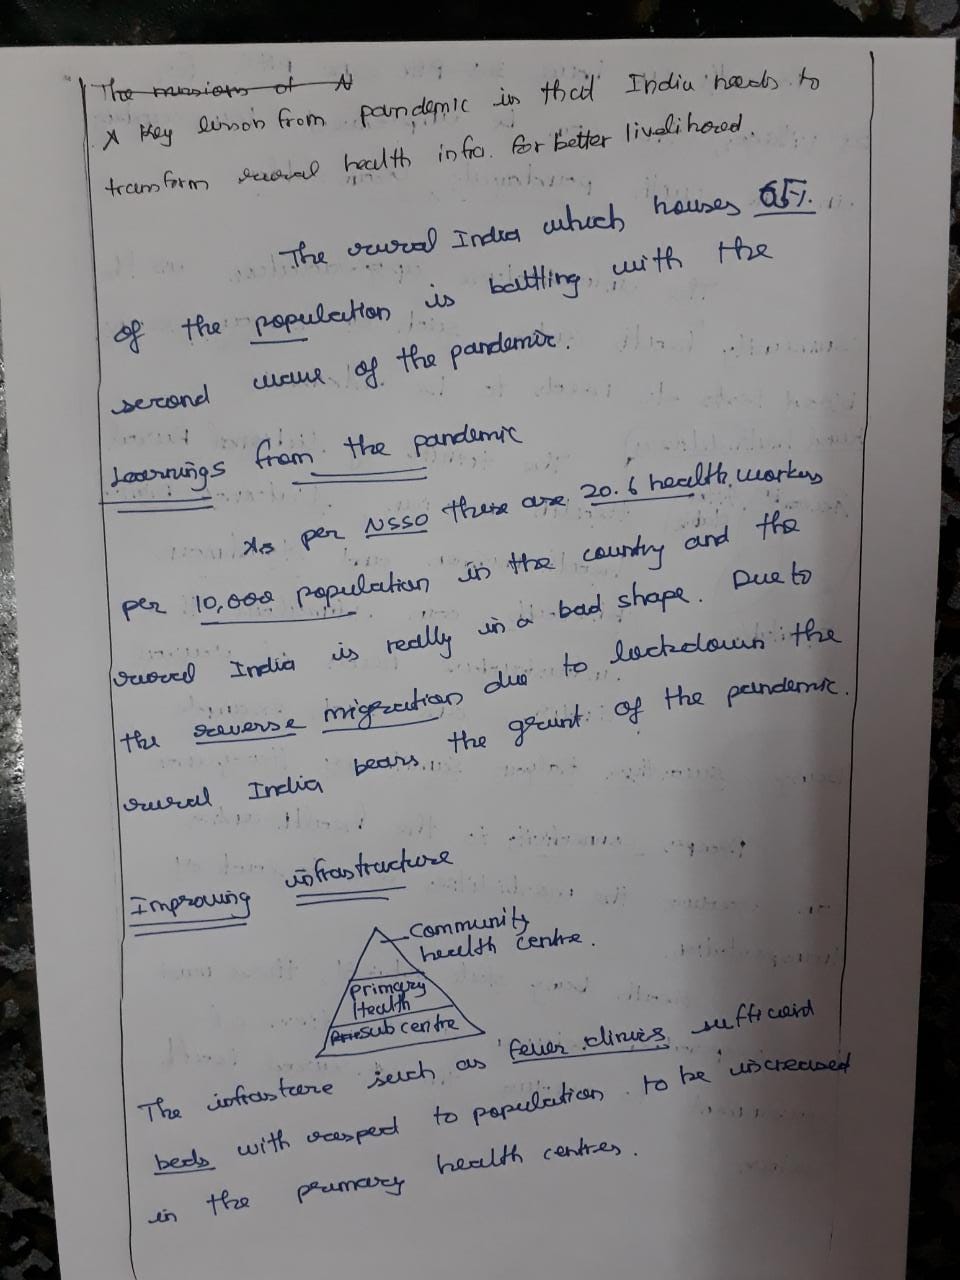 The missions of N
A key lesson from pandemic is that India needs to
transform rural health infra. for better livelihood.
The rural India which houses 65%.
of the population is battling with the
second wave of the pandemic.
Learnings from the pandemic
As per NSSO there are 20.6 health workers
per 10,000 population in the country and the
rural India is really in a bad shape. Due to
the reverse migration due to lockdown the
rural India bears the grunt of the pandemic.
Improving infrastructure
Community
health centre.
Primary
Health
sub centre
The infrasture such as 'fever clinics sufficient
beds with respect to population to be increased
in the primary health centres.